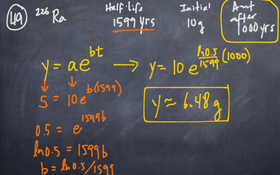 49 ²²⁶Ra Half-Life 1599 yrs Initial 10g Amt after 1000 yrs
y = ae^(bt) → y = 10 e^((ln0.5/1599)(1000))
5 = 10e^(b(1599))
y ≈ 6.48 g
0.5 = e^(1599b)
ln0.5 = 1599b
b = ln0.5/1599